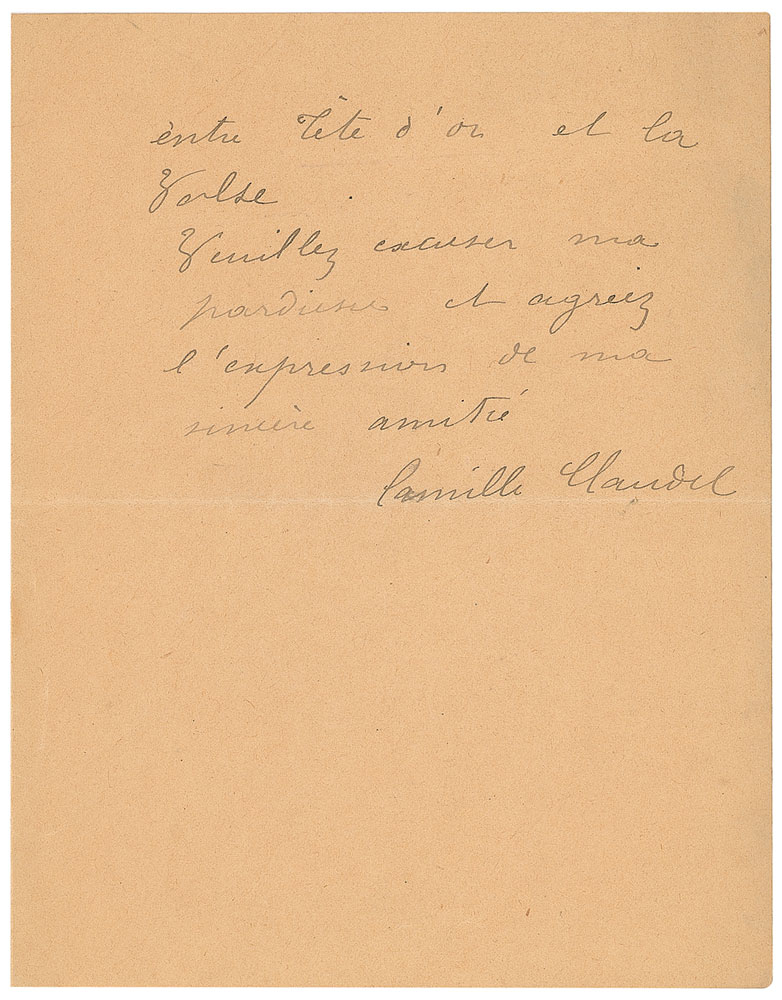 entre Tête d'or et la
Valse.
Veuillez excuser ma
et agréez
l'expression de ma
sincère amitié
Camille Claudel